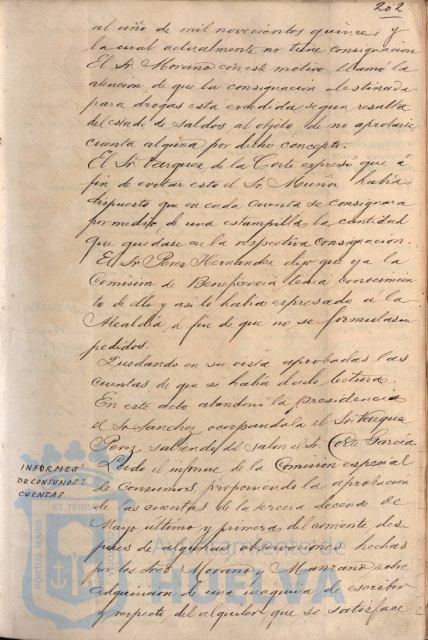 202
al año de mil novecientos quince y
la cual actualmente no tiene consignacion
El Sr. Morano con este motivo llamó la
atencion de que la consignacion destinada
para drogas esta escedida segun resulta
del estado de saldos al objeto de no aprobarse
cuenta alguna por dicho concepto.
El Sr. Vazquez de la Corte expresó que á
fin de evitar esto el Sr. Muñiz había
dispuesto que en cada cuenta se consignara
por medio de una estampilla la cantidad
que quedase en la respectiva consignacion.
El Sr. Perez Hernandez dijo que ya la
Comision de Beneficencia tenia conocimien
to de ello y asi lo habia expresado a la
Alcaldia, a fin de que no se formulasen
pedidos.
Quedando en su vista aprobadas las
cuentas de que se habia dado lectura.
En este acto abandonó la presidencia
el Sr. Sanchez ocupandola el Sr. Vazquez
Perez saliendo del salon el Sr. Corte Garcia.
INFORMES
DE CONSUMOS:
CUENTAS.
Leido el informe de la Comision especial
de Consumos proponiendo la aprobacion
de las cuentas de la tercera decena de
Mayo ultimo y primera del corriente des-
pues de algunas observaciones hechas
por los Sres. Morano y Manzano sobre
adquisicion de una maquina de escribir
y respecto del alquiler que se satisface
PORTUS MARIS ET TERRAE
Ayuntamiento de
HUELVA